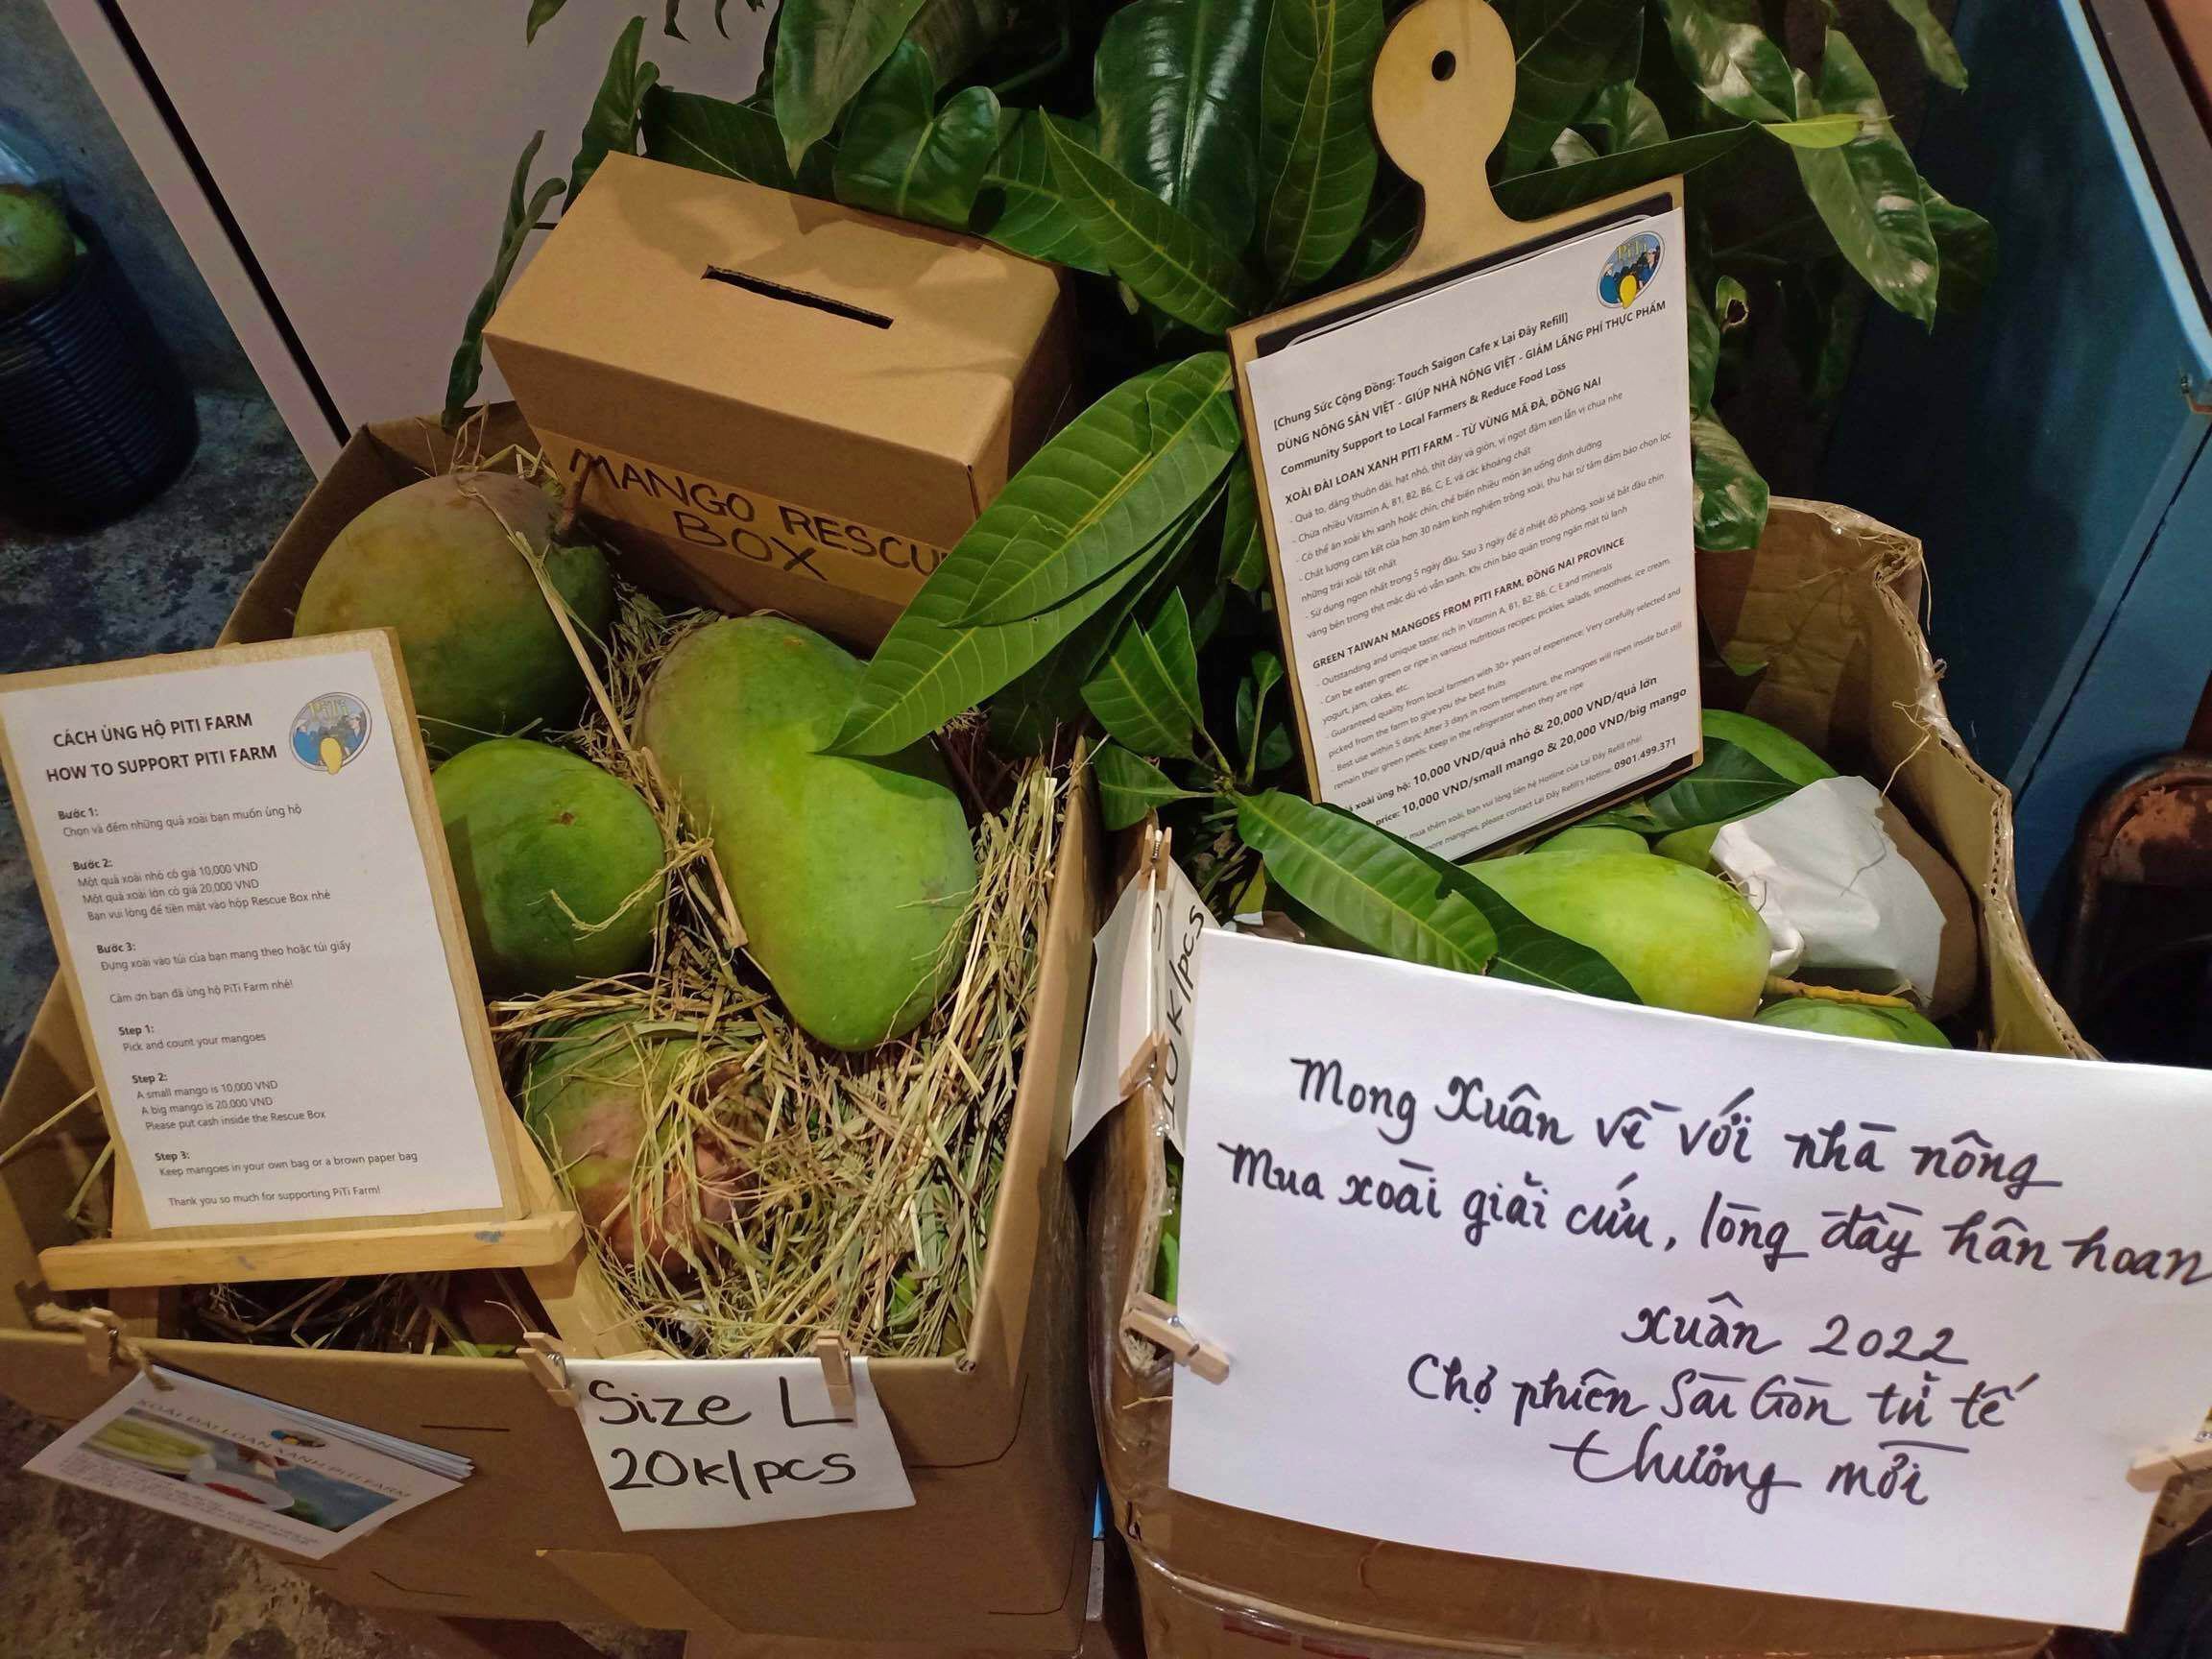 MANGO RESCU
BOX
CÁCH ỦNG HỘ PITI FARM
HOW TO SUPPORT PITI FARM
PiTi
Bước 1:
Chọn và đếm những quả xoài bạn muốn ủng hộ
Bước 2:
Một quả xoài nhỏ có giá 10,000 VND
Một quả xoài lớn có giá 20,000 VND
Bạn vui lòng để tiền mặt vào hộp Rescue Box nhé
Bước 3:
Đựng xoài vào túi của bạn mang theo hoặc túi giấy
Cảm ơn bạn đã ủng hộ PiTi Farm nhé!
Step 1:
Pick and count your mangoes
Step 2:
A small mango is 10,000 VND
A big mango is 20,000 VND
Please put cash inside the Rescue Box
Step 3:
Keep mangoes in your own bag or a brown paper bag
Thank you so much for supporting PiTi Farm!
XOÀI ĐÀI LOAN XANH PITI FARM
Size L
20K/pcs
PiTi
[Chung Sức Cộng Đồng: Touch Saigon Cafe x Lại Đây Refill]
DÙNG NÔNG SẢN VIỆT - GIÚP NHÀ NÔNG VIỆT - GIẢM LÃNG PHÍ THỰC PHẨM
Community Support to Local Farmers & Reduce Food Loss
XOÀI ĐÀI LOAN XANH PITI FARM - TỪ VÙNG MÃ ĐÀ, ĐỒNG NAI
- Quả to, dáng thuôn dài, hạt nhỏ, thịt dày và giòn, vị ngọt đậm xen lẫn vị chua nhẹ
- Chứa nhiều Vitamin A, B1, B2, B6, C, E, và các khoáng chất
- Có thể ăn xoài khi xanh hoặc chín, chế biến nhiều món ăn uống dinh dưỡng
- Chất lượng cam kết của hơn 30 năm kinh nghiệm trồng xoài, thu hái từ tâm đảm bảo chọn lọc
những trái xoài tốt nhất
- Sử dụng ngon nhất trong 5 ngày đầu. Sau 3 ngày để ở nhiệt độ phòng, xoài sẽ bắt đầu chín
vàng bên trong thịt mặc dù vỏ vẫn xanh. Khi chín bảo quản trong ngăn mát tủ lạnh
GREEN TAIWAN MANGOES FROM PITI FARM, ĐỒNG NAI PROVINCE
- Outstanding and unique taste; rich in Vitamin A, B1, B2, B6, C, E and minerals
- Can be eaten green or ripe in various nutritious recipes: pickles, salads, smoothies, ice cream,
yogurt, jam, cakes, etc.
- Guaranteed quality from local farmers with 30+ years of experience; Very carefully selected and
picked from the farm to give you the best fruits
- Best use within 5 days; After 3 days in room temperature, the mangoes will ripen inside but still
remain their green peels; Keep in the refrigerator when they are ripe
xoài ủng hộ: 10,000 VND/quả nhỏ & 20,000 VND/quả lớn
price: 10,000 VND/small mango & 20,000 VND/big mango
mua thêm xoài, bạn vui lòng liên hệ Hotline của Lại Đây Refill nhé!
more mangoes, please contact Lại Đây Refill's Hotline: 0901.499.371
10K/pcs
Mong Xuân về với nhà nông
Mua xoài giải cứu, lòng đầy hân hoan
Xuân 2022
Chợ phiên Sài Gòn tử tế
thưởng mời